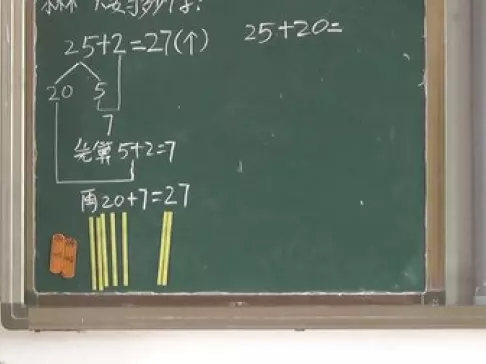 25+2=27(个)
25+20=
20 5
7
先算5+2=7
再20+7=27